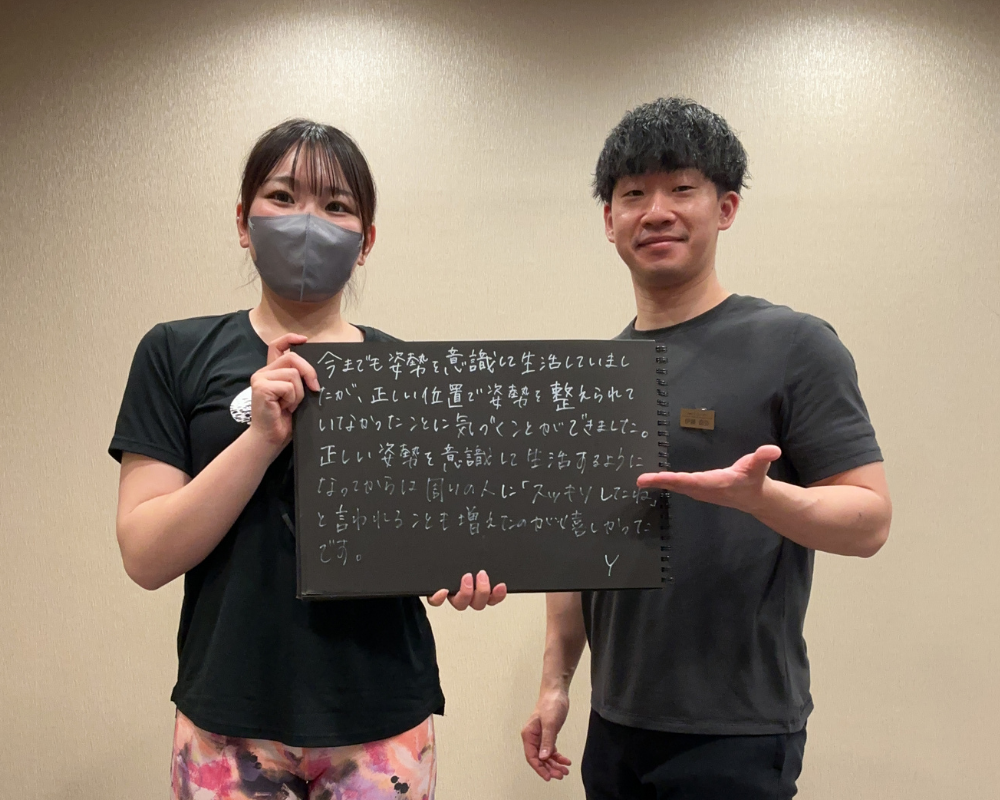 今までも姿勢を意識して生活していまし
たが、正しい位置で姿勢を整えられて
いなかったことに気づくことができました。
正しい姿勢を意識して生活するように
なってからは周りの人に「スッキリしたね」
と言われることも増えたのが嬉しかった
です。
Y